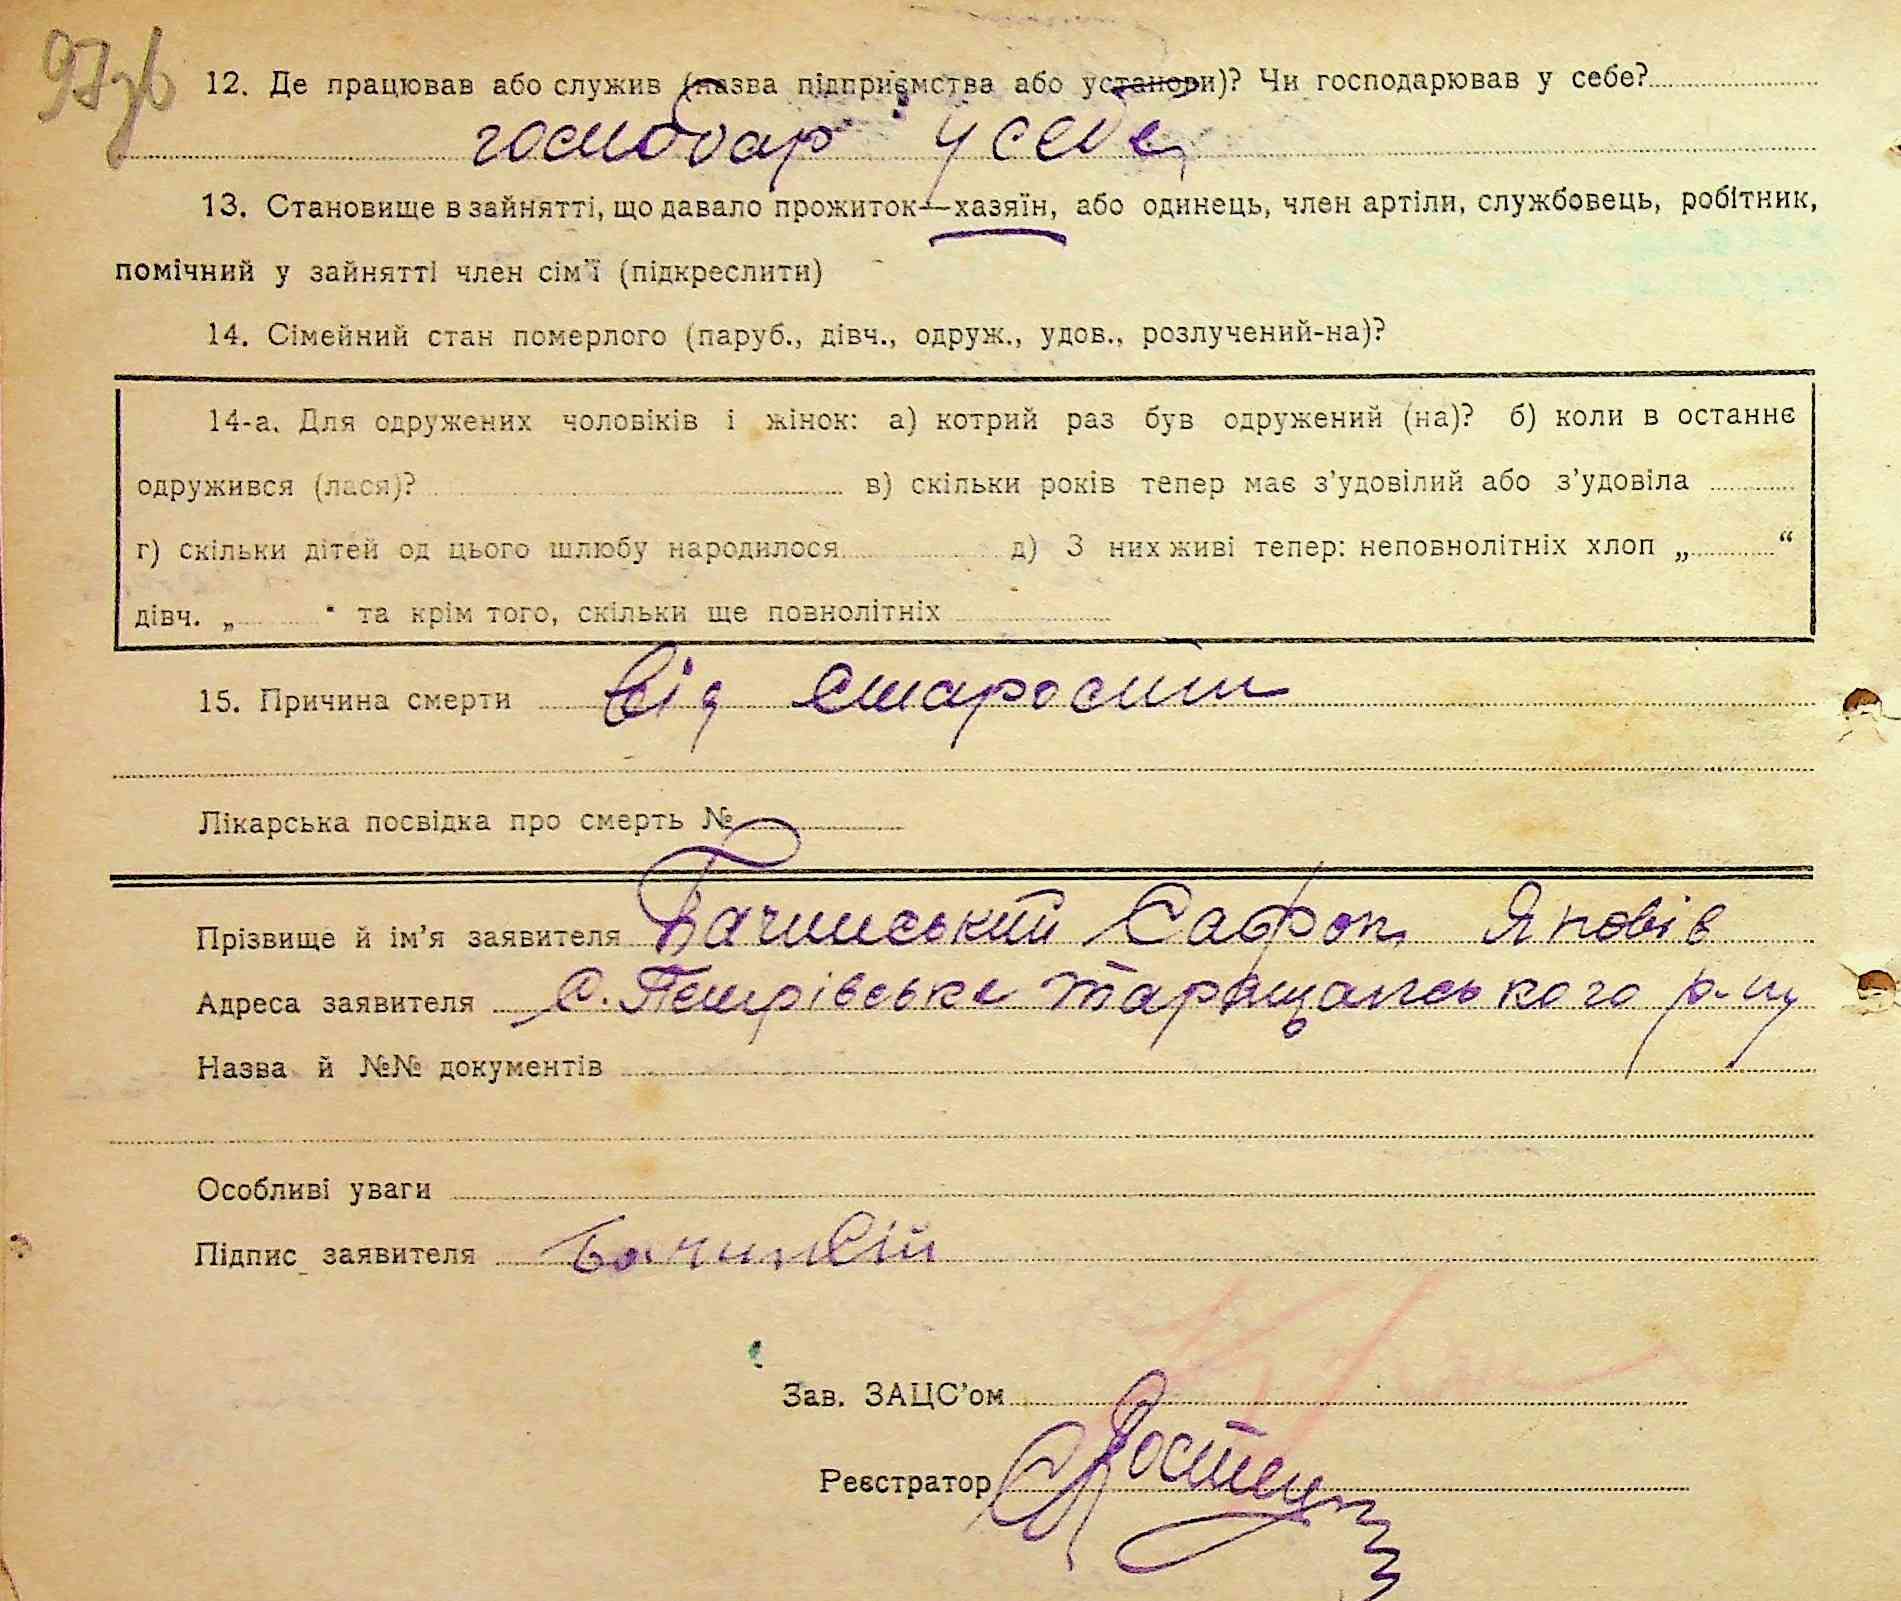 97зв
12. Де працював або служив (назва підприємства або установи)? Чи господарював у себе?
господар у себе
13. Становище в зайнятті, що давало прожиток—хазяїн, або одинець, член артіли, службовець, робітник,
помічний у зайнятті член сім'ї (підкреслити)
14. Сімейний стан померлого (паруб., дівч., одруж., удов., розлучений-на)?
14-а. Для одружених чоловіків і жінок: а) котрий раз був одружений (на)? б) коли в останнє
одружився (лася)? в) скільки років тепер має з'удовілий або з'удовіла
г) скільки дітей од цього шлюбу народилося д) З них живі тепер: неповнолітніх хлоп „ “
дівч. „ " та крім того, скільки ще повнолітніх
15. Причина смерти від старости
Лікарська посвідка про смерть №
Прізвище й ім'я заявителя Бачинський Сафон
Адреса заявителя с. Петрівське Таращанського р-ну
Назва й №№ документів
Особливі уваги
Підпис заявителя
Зав. ЗАЦС'ом
Реєстратор